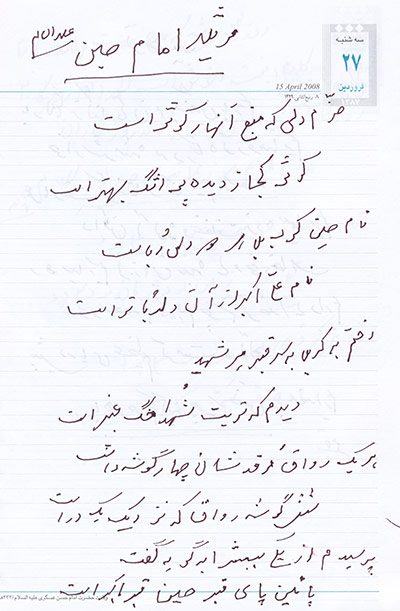 مرثیه امام حسین علیه السلام
سه شنبه
۲۷
فروردین
۱۳۸۷
15 April 2008
۸ ربیع الثانی ۱۴۲۹
خرّم دلی که منبع انهار کوثر است
کوثر کجا ز دیده پر اشک بهتر است
نام حسین کرببلا هر دو دلرباست
نام علیّ اکبر از آن دلرباتر است
رفتم به کربلا به سر قبر هر شهید
دیدم که تربت شهدا مشگ عنبر است
هر یک رواق مرقدشان چهار گوشه داشت
شش گوشه رواق که نز دیک یک در است
پرسیدم از یکی به گریه گفت
پائین پای قبر حسین قبر اکبر است
حضرت امام حسن عسکری علیه السلام